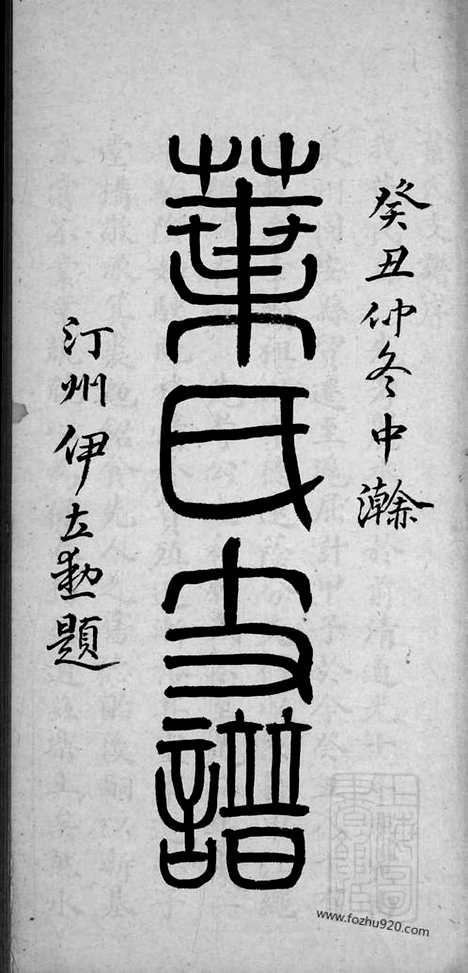 癸丑仲冬中瀚
葉氏支譜
汀州伊立勳題
www.fozhu920.com